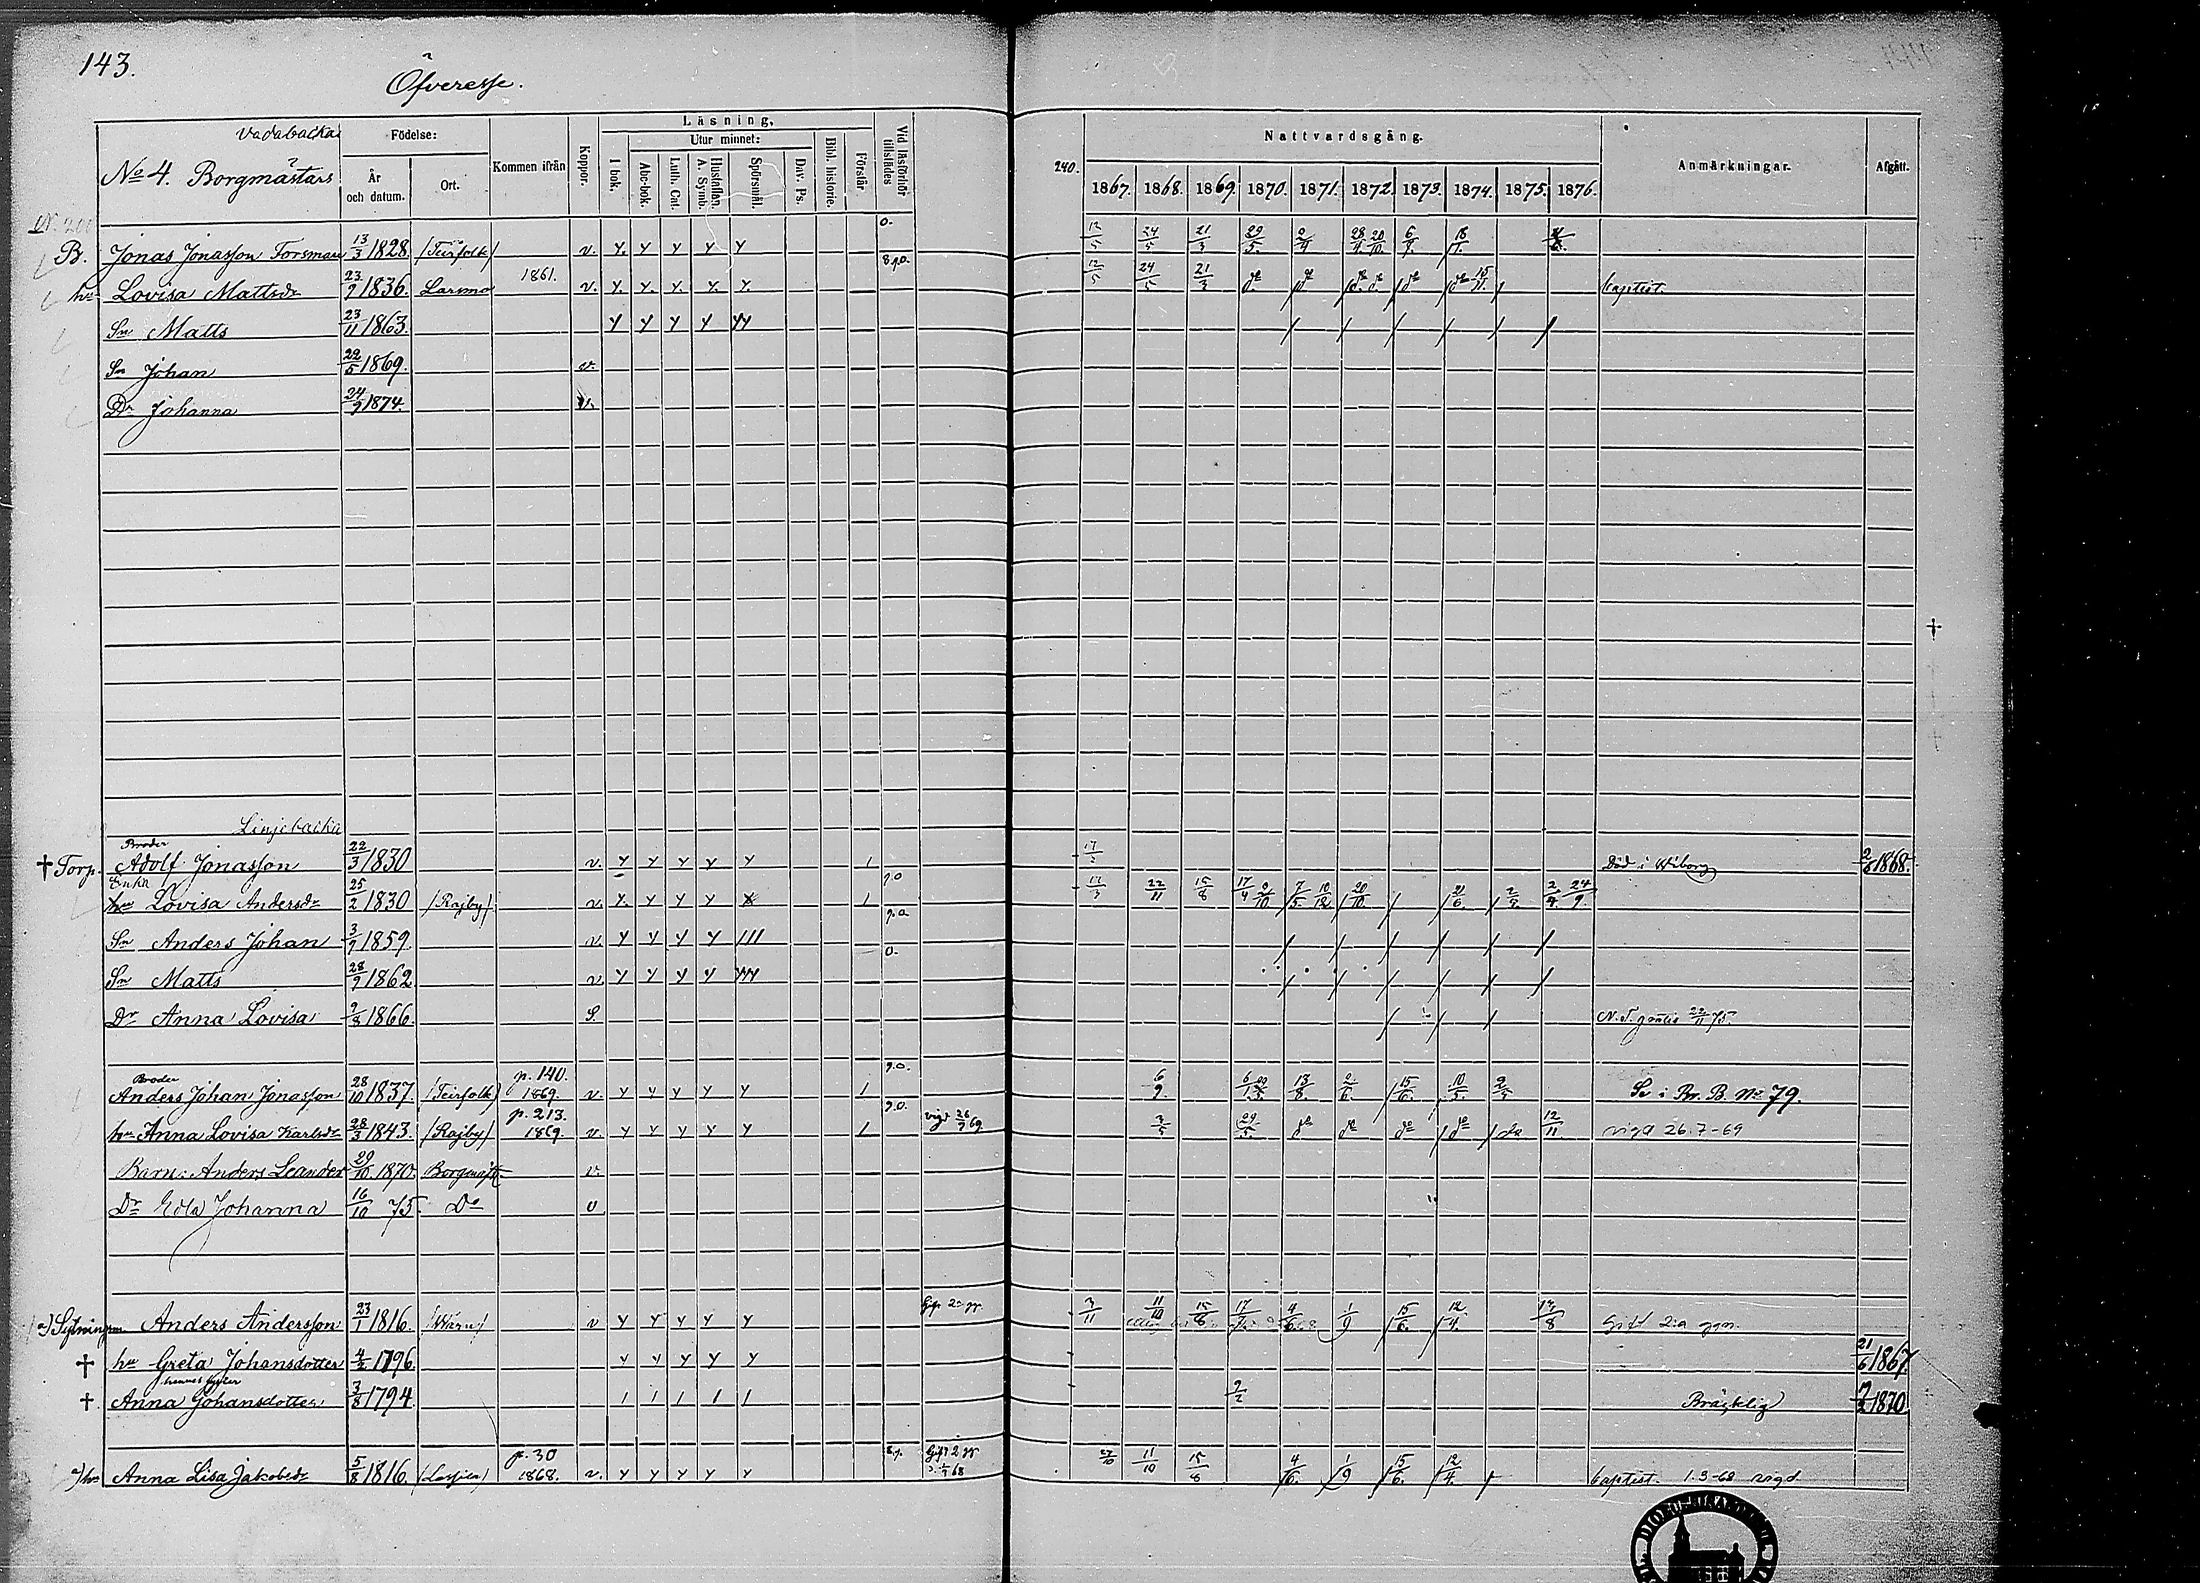 143.
Öfveresse.
Vadabacka
No 4. Borgmästars
Födelse:
År och datum.
Ort.
Kommen ifrån
Koppor.
Läsning,
Utur minnet:
I bok.
Abc-bok.
Luth. Cat.
Hustaflan. A. Symb.
Spörsmål.
Dav. Ps.
Bibl. historie.
Förstår
Vid läsförhör tillstädes
240.
Nattvardsgång.
1867. 1868. 1869. 1870. 1871. 1872. 1873. 1874. 1875. 1876.
Anmärkningar.
Afgått.
B. Jonas Jonasson Forsman 13/3 1828. (Teirfolk) v. y. y y y y 0. 12/5 24/5 21/3 29/5. 2/4 28/4 20/10. 6/4. 18/1.
hu Lovisa Mattsdr 23/9 1836. Larsmo 1861. v. y. y. y. y. y. 12/5 24/5 21/3 baptist.
Sn Matts 23/11 1863. y y y y yy / / / / / /
Sn Johan 22/5 1869. v.
Dr Johanna 24/9 1874. v.
Linjebacka
† Torp. Broder Adolf Jonasson 22/3 1830 v. y y y y y 1 17/2 Död i Wiborg 2/8 1868.
Enka hu Lovisa Andersdr 25/2 1830 (Rajby) v. y. y y y y 1 9.0 17/3 22/11 15/8 17/4 2/10 7/5. 10/12 20/10. / 21/6. 2/4. 24/9.
Sn Anders Johan 3/9 1859. v. y y y y /// 9.0. / / / / / /
Sn Matts 28/9 1862 v. y y y y 0. / / / / / /
Dr Anna Lovisa 9/8 1866. S. / / / N. T. gratis 22/11 75.
Broder Anders Johan Jonasson 28/10 1837. (Teirfolk) p. 140. 1869. v. y y y y y 1 9.0. 6/9. 13/8. 2/6. 15/6. 10/5. Se i Br. B. No 79.
hu Anna Lovisa Karlsdr 28/3 1843. (Rajby) p. 213. 1869. v. y y y y y 1 9.0. vigd 26/7 69 3/5 29/5. do do do do do 12/11. vigd 26.7-69
Barn: Anders Leander 29/10. 1870. Borgmäst. v.
Dr Edla Johanna 16/10 75. Do v
a) Sytningm. Anders Andersson 23/1 1816. v y y y y y Gift 2a gg. 3/11 11/10 15/8 17/4 4/6. 1/9 15/6. 12/4. 14/8 Gift 2:a ggn.
† hu Greta Johansdotter 4/2 1796. y y y y y 21/6 1867.
† hennes syster Anna Johansdotter 3/8 1794. 1 1 1 1 1 9/2 Bräcklig 9/2 1870
a) hu Anna Lisa Jakobsdr 5/8 1816. p. 30 1868. v. y y y y y Gift 2 gg 1/3 68 27/10 11/10 15/8 4/6. 1/9 15/6. 12/4. / baptist. 1.3-68 vigd.